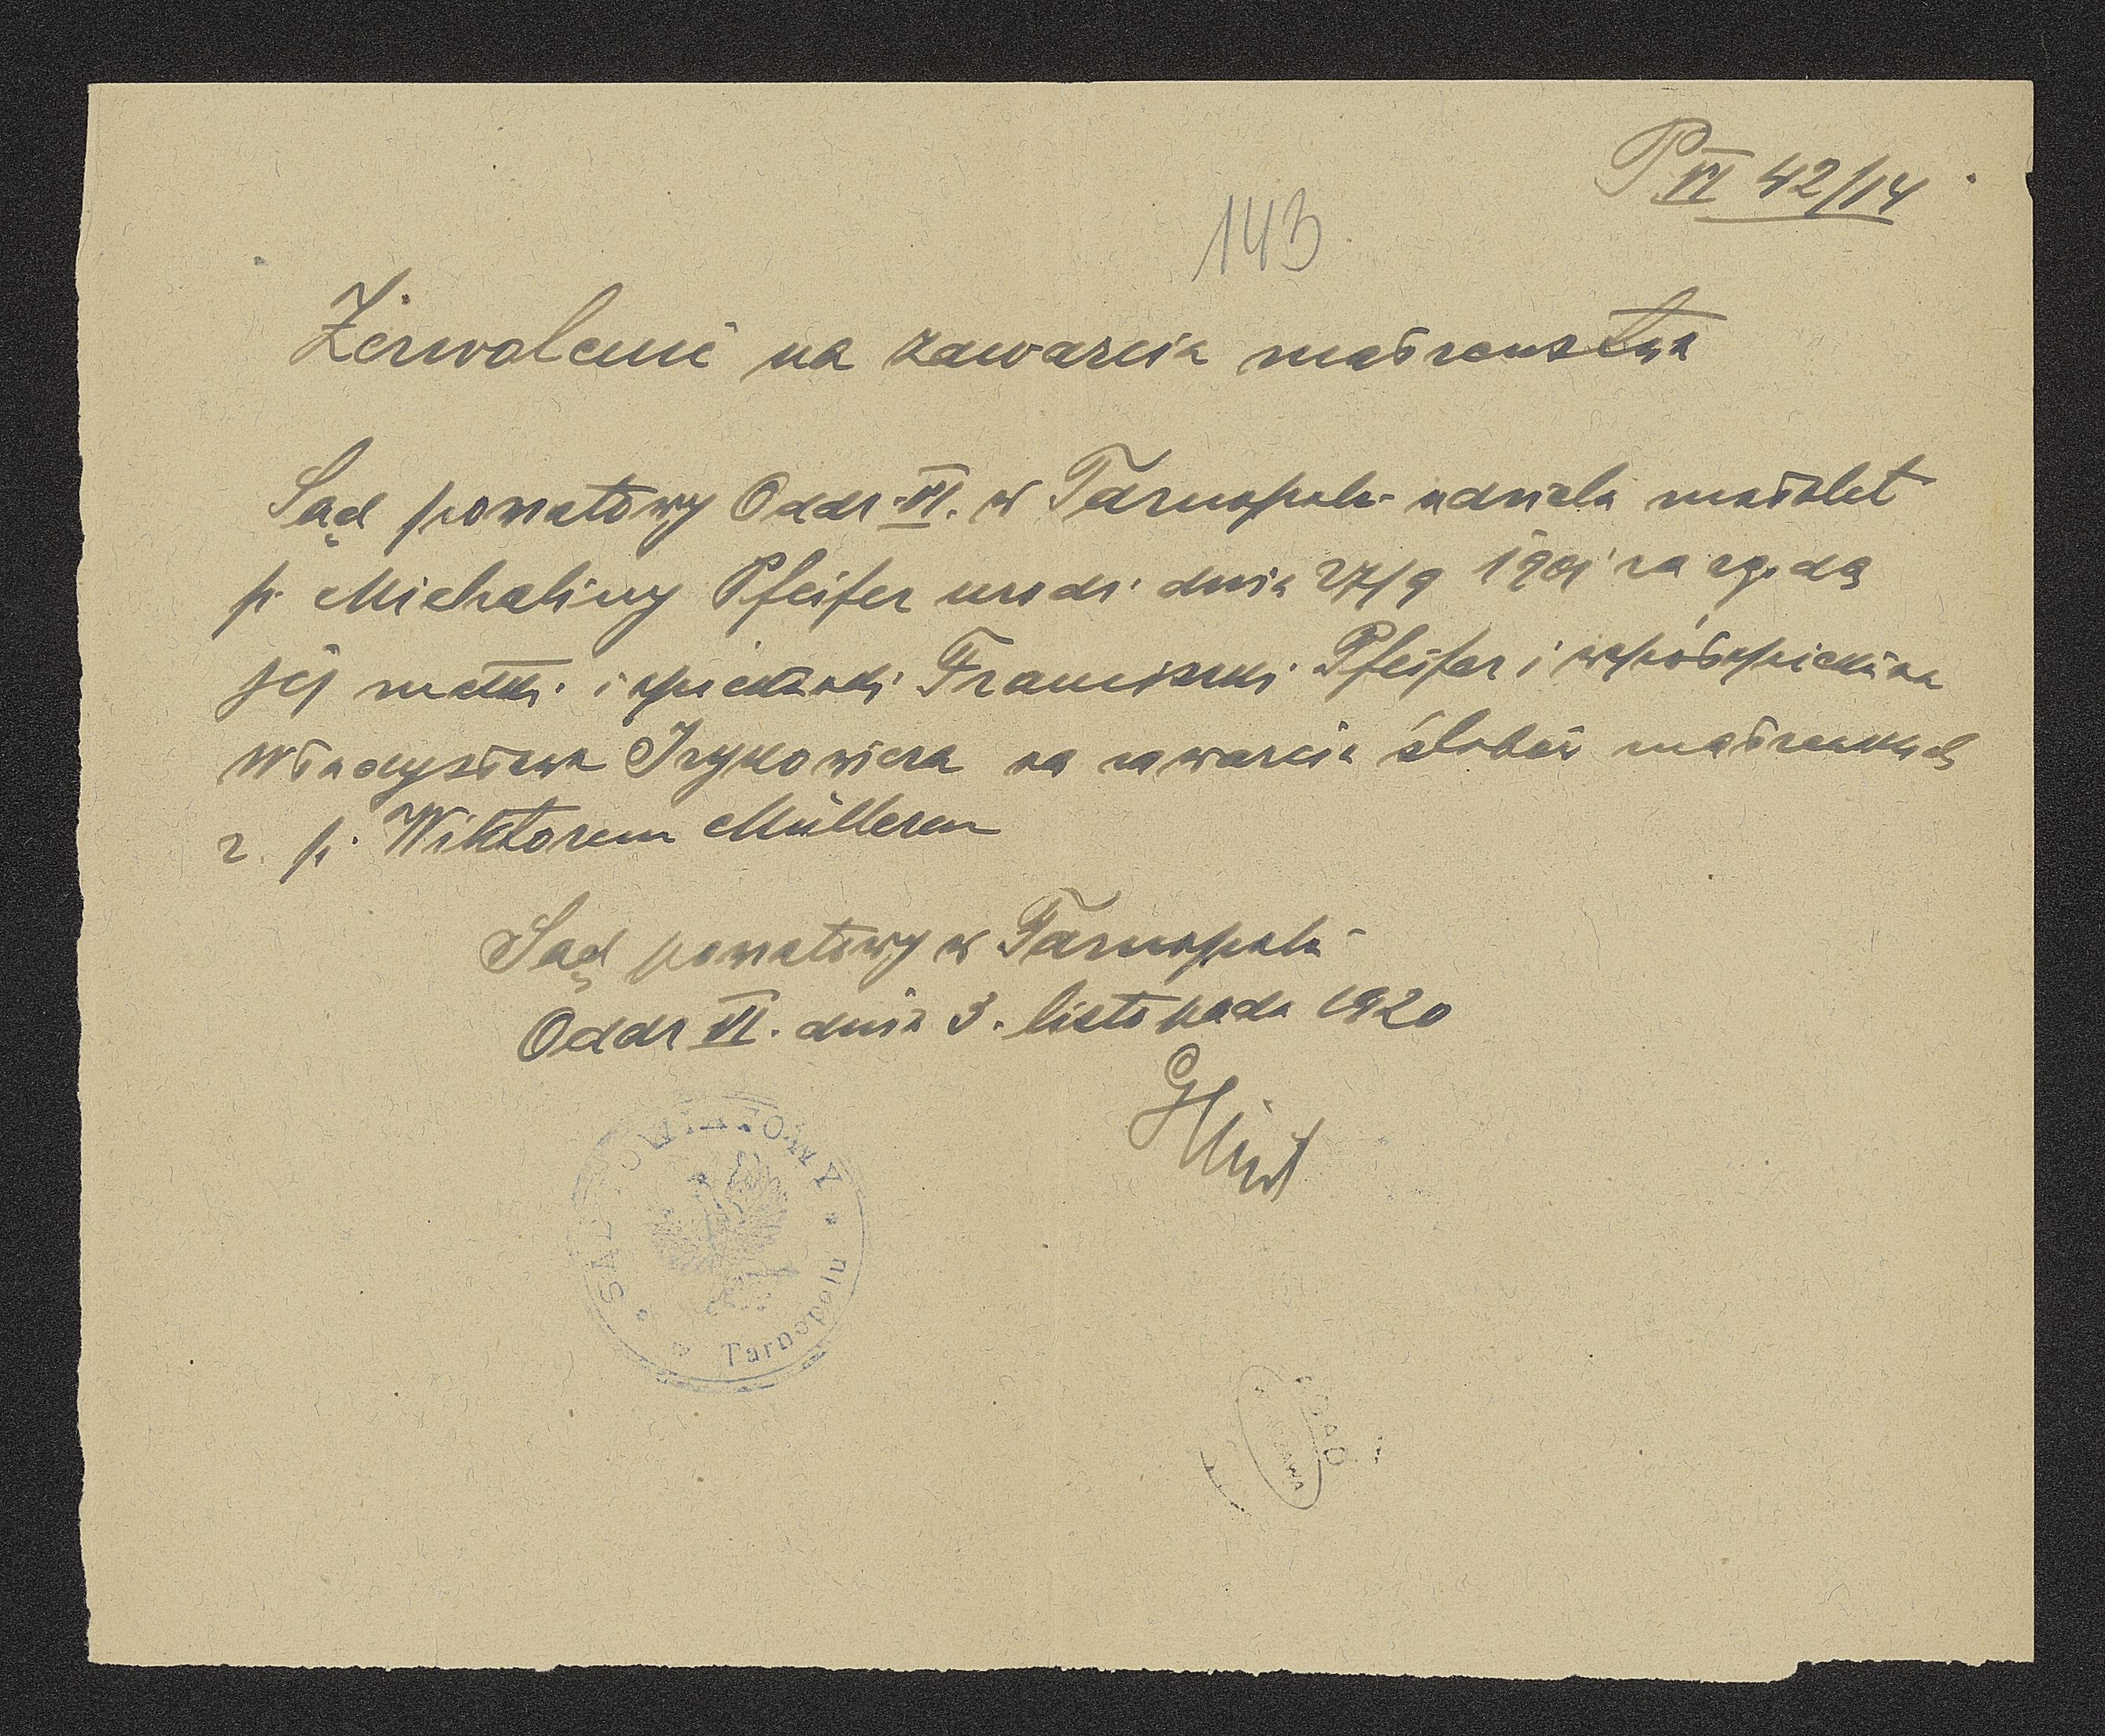 P VI 42/14
143
Zezwolenie na zawarcie małżeństwa
Sąd powiatowy Oddz. VI. w Tarnopolu udziela małolet
p. Michaliny Pfeifer urodz. dnia 27/9 1901 za zgodą
jej matki i opiekunki Franciszki Pfeifer i współopiekuna
Władysława Irzykowicza na zawarcie ślubów małżeńskich
z p. Wiktorem Müllerem
Sąd powiatowy w Tarnopolu
Oddz VI. dnia 3. listopada 1920
SĄD POWIATOWY
w Tarnopolu